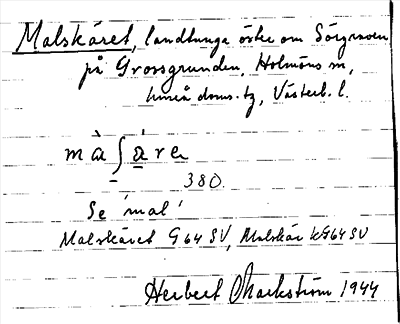 Malskäret, landtunga öster om Sörgraven
på Grossgrunden, Holmöns sn,
Umeå doms. tg, Västerb. l.
mà∫áre
380.
Se 'mal'
Malskäret G 64 SV, Malskär kG64 SV
Herbert Markström 1944